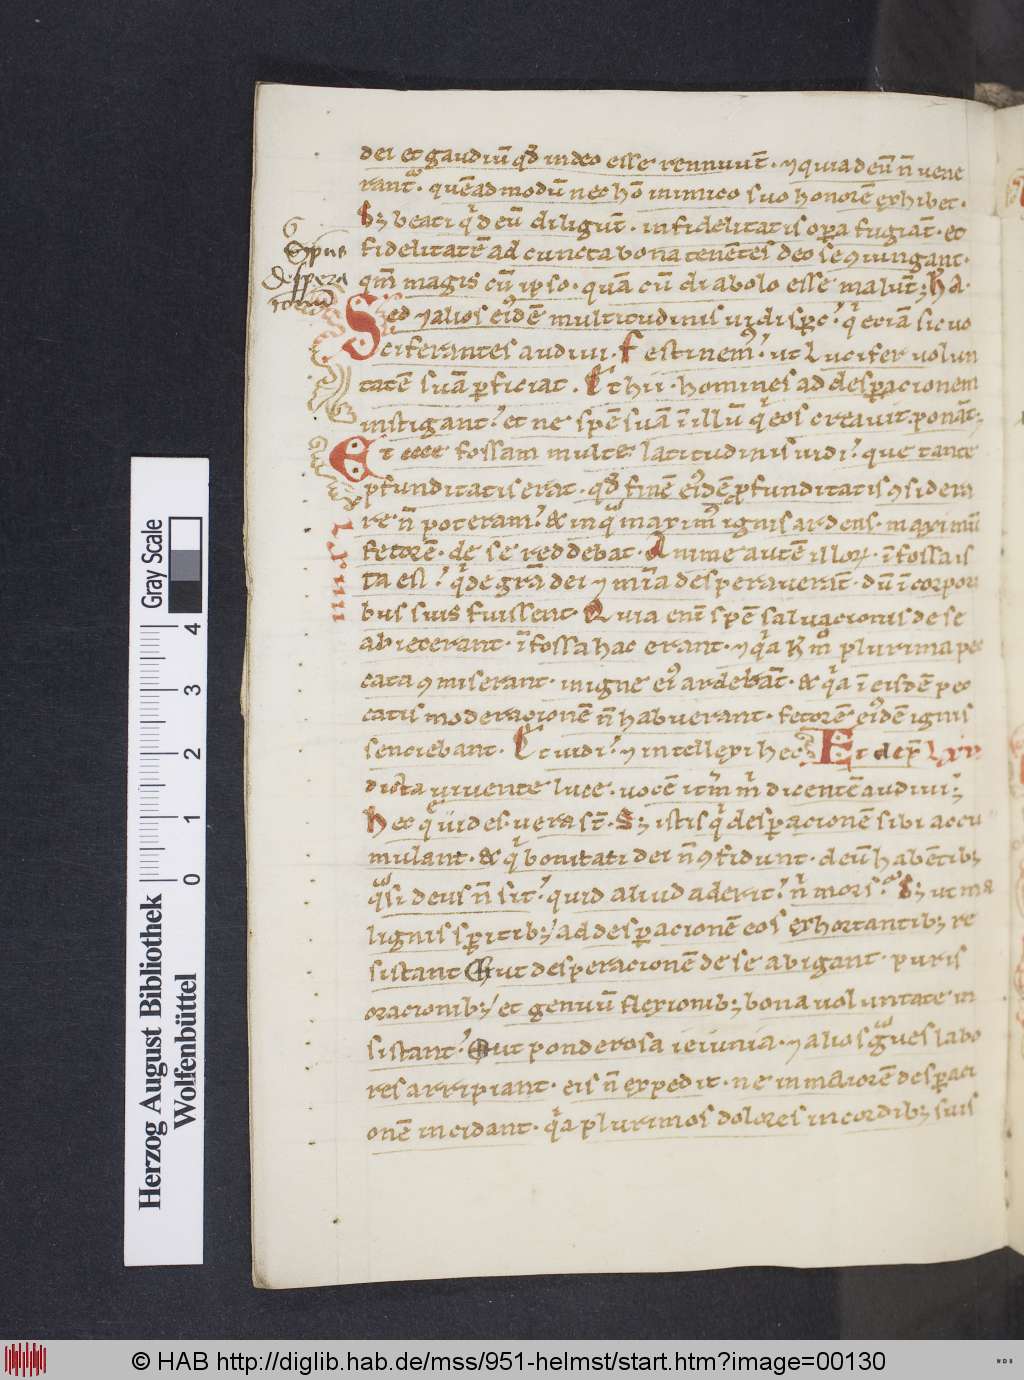 dei et gaudiū qd̄ in deo esse rennuūt · ⁊ quia deū n̄ vene
rant̄ · quēadmodū nec hō inimico suo honorē exhibet ·
Sꝫ beati q̇ deū diligūt · infidelitatis oꝑa fugiāt · et
fidelitatē ad cuncta bona tenētes deo se ꝯiungant ·
qm̄ magis cū ipso · quā cū diabolo esse malūt ;
6
Sp̄us
despera
Sed ⁊ alios eiꝰdē multitudinis vidi sp̄c · q̇ eciā sic vo
ciferantes audiui · Festinemꝰ ut Lucifer volun
tatē suā ꝑficiat · Et hii · homines ad desꝑacionem
instigant · et ne spē suā ī illū q̇ eos creavit · ponāt ;
Et fossam multe latitudinis vidi · que tante
ꝓfunditatis erat · qd̄ finē eiꝰdē ꝓfunditatis ꝯsidera
re n̄ poteram · & inq̄ maximꝰ ignis ardens · maximū
fetorē · de se reddebat · Anime autē illoꝝ · ī fossa is
ta
q̇ de grā dei ⁊ mīa desperaverāt · dū ī corpori
bus suis fuissent · Quia enī spē salvacionis de se
abiecerant · ī fossa hac erant · ⁊ q̇a plurima pec
cata ꝯmiserant · in igne eiꝰ ardebāt · & q̇a ī eisdē pec
catis moderacionē n̄ habuerant · fetorē eiꝰdē ignis
senciebant · Et vidi ⁊ intellexi hec Et
dicta vivente luce · vocē itm̄ m̄ dicentē audivi ;
Hec q̄ vides · vera sт̄ · Sꝫ istis q̇ desꝑacionē sibi accu
mulant · & q̇ bonitati dei n̄ ꝯfidunt · deū habētibꝫ
q̄si deus n̄ sit · quid aliud aderit · n̄ mors · Sꝫ ut ma
lignis sꝑitibꝫ / ad desꝑacionē eos exhortantibꝫ re
sistant Et ut desperacionē de se abigant · puris
oracionibꝫ / et genuū flexionibꝫ bona voluntate in
sistant · Aut ponderosa ieiunia · ⁊ alios g̃ues labo
res arripiant · eis n̄ expedit · ne in maiorē desꝑaci
onē incidant · q̇a plurimos dolores in cordibꝫ suis
Gray Scale
0 1 2 3 4
Herzog August Bibliothek
Wolfenbüttel
© HAB http://diglib.hab.de/mss/951-helmst/start.htm?image=00130